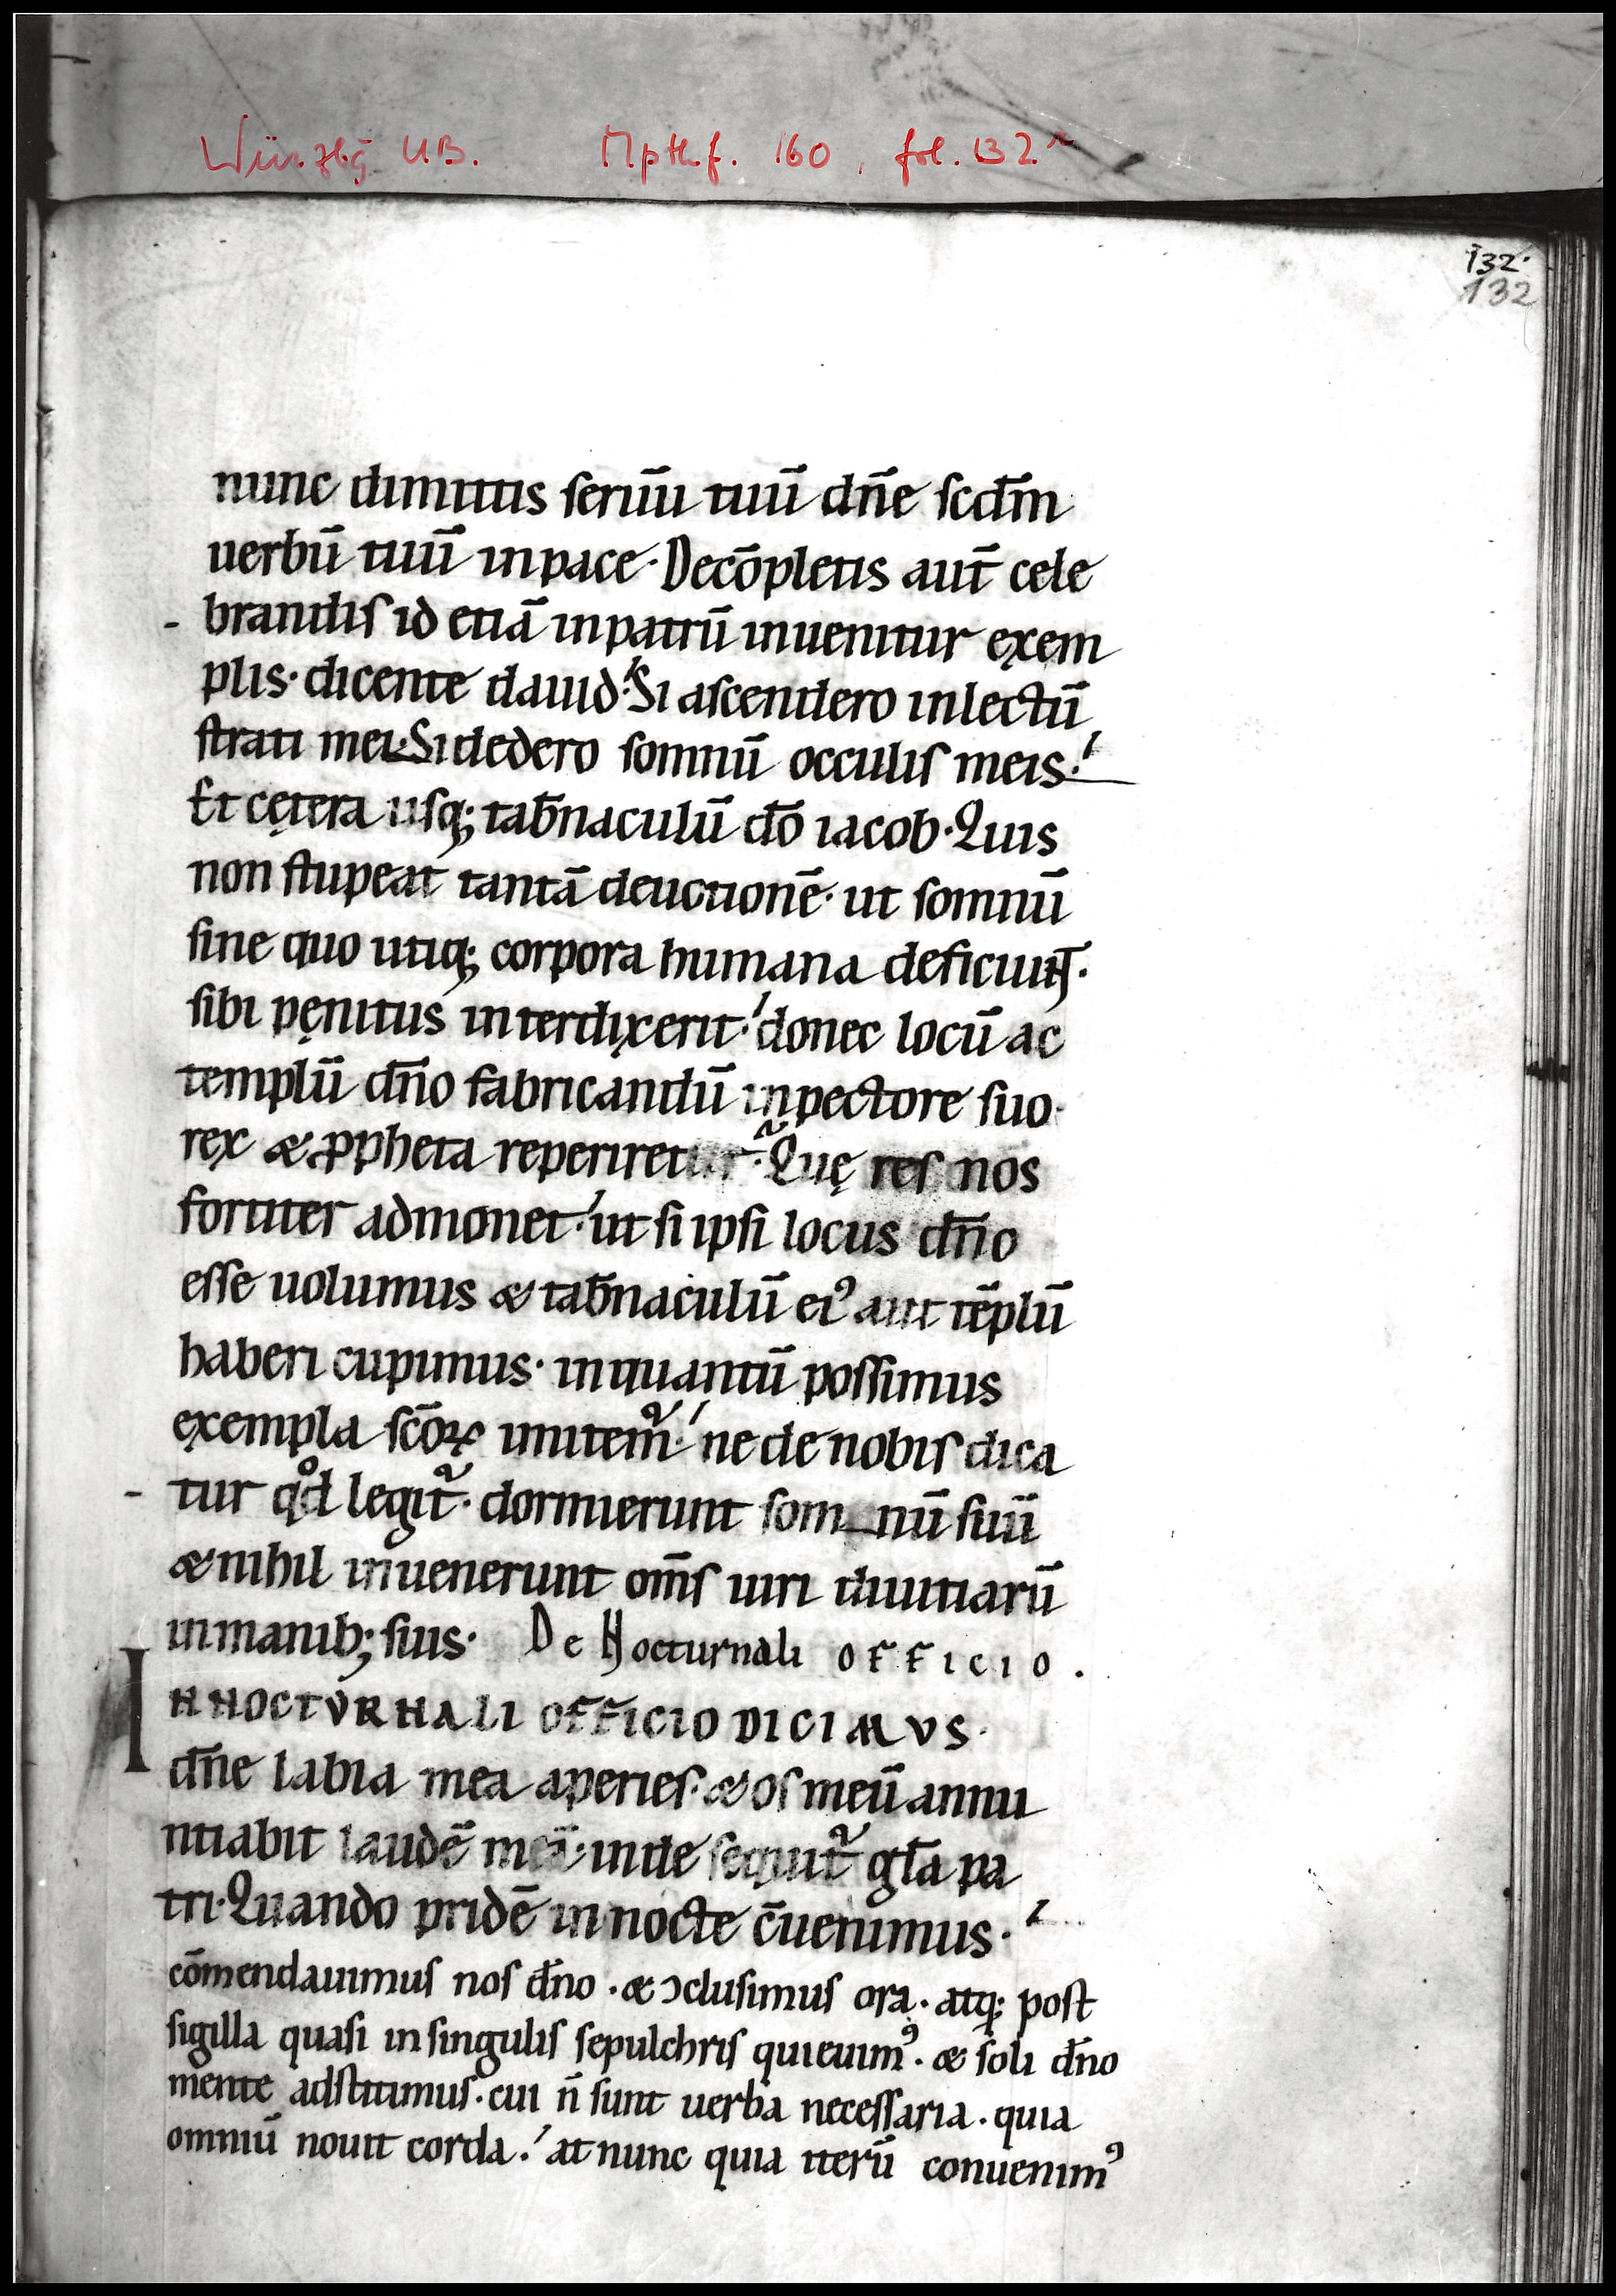 Würzbg UB. Mpth.f. 160, fol. 132r
132.
132
nunc dimittis seruū tuū dn̄e scdm̄
uerbū tuū inpace· Decōpletis aut̄ cele
- brandis id etiā inpatrū inuenitur exem
plis· dicente dauid·' Si ascendero inlectū
strati mei· Si dedero somnū occulis meis·'
Et cętera usq; tab̄naculū dō iacob· Quis
non stupeat tantā deuotionē· ut somnū
sine quo utiq; corpora humana deficiuꝜ·
sibi pęnitus interdixerit·' donec locū ac
templū dn̄o fabricandū inpectore suo·
rex & ꝓpheta reperiretur·̃ Quę res nos
fortiter admonet·' ut si ipsi locus dn̄o
esse uolumus & tab̄naculū ei᾽ aut tēplū
haberi cupimus· inquantū possimus
exempla scōꝝ imitem᷑·' ne de nobis dica
- tur qͦd legit᷑· dormierunt som_nū suū
& nihil inuenerunt om̄s uiri diuitiarū
inmanib; suis· De Nocturnali officio.
INNOCTVRNALI OFFICIO DICIMVS·
dn̄e labia mea aperies· & os meū annu
ntiabit laudē meā· inde sequit᷑ gl̄a pa
tri· Quando pridē in nocte c̄uenimus·'
cōmendauimus nos dn̄o · & ɔclusimus ora· atq; post
sigilla quasi in singulis sepulchris quieuimꝰ· & soli dn̄o
mente adstitimus· cui n̄ sunt uerba necessaria· quia
omniū nouit corda·' at nunc quia iterū conuenimꝰ